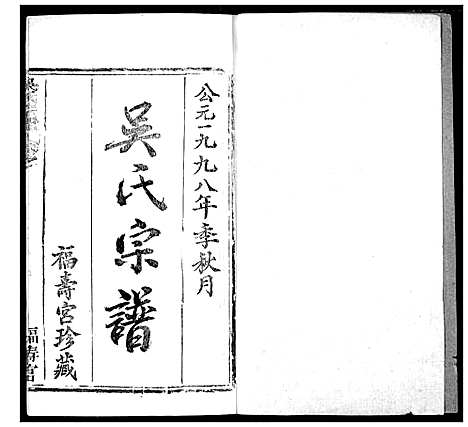 公元一九九八年季秋月
吴氏宗譜
福壽宮珍藏